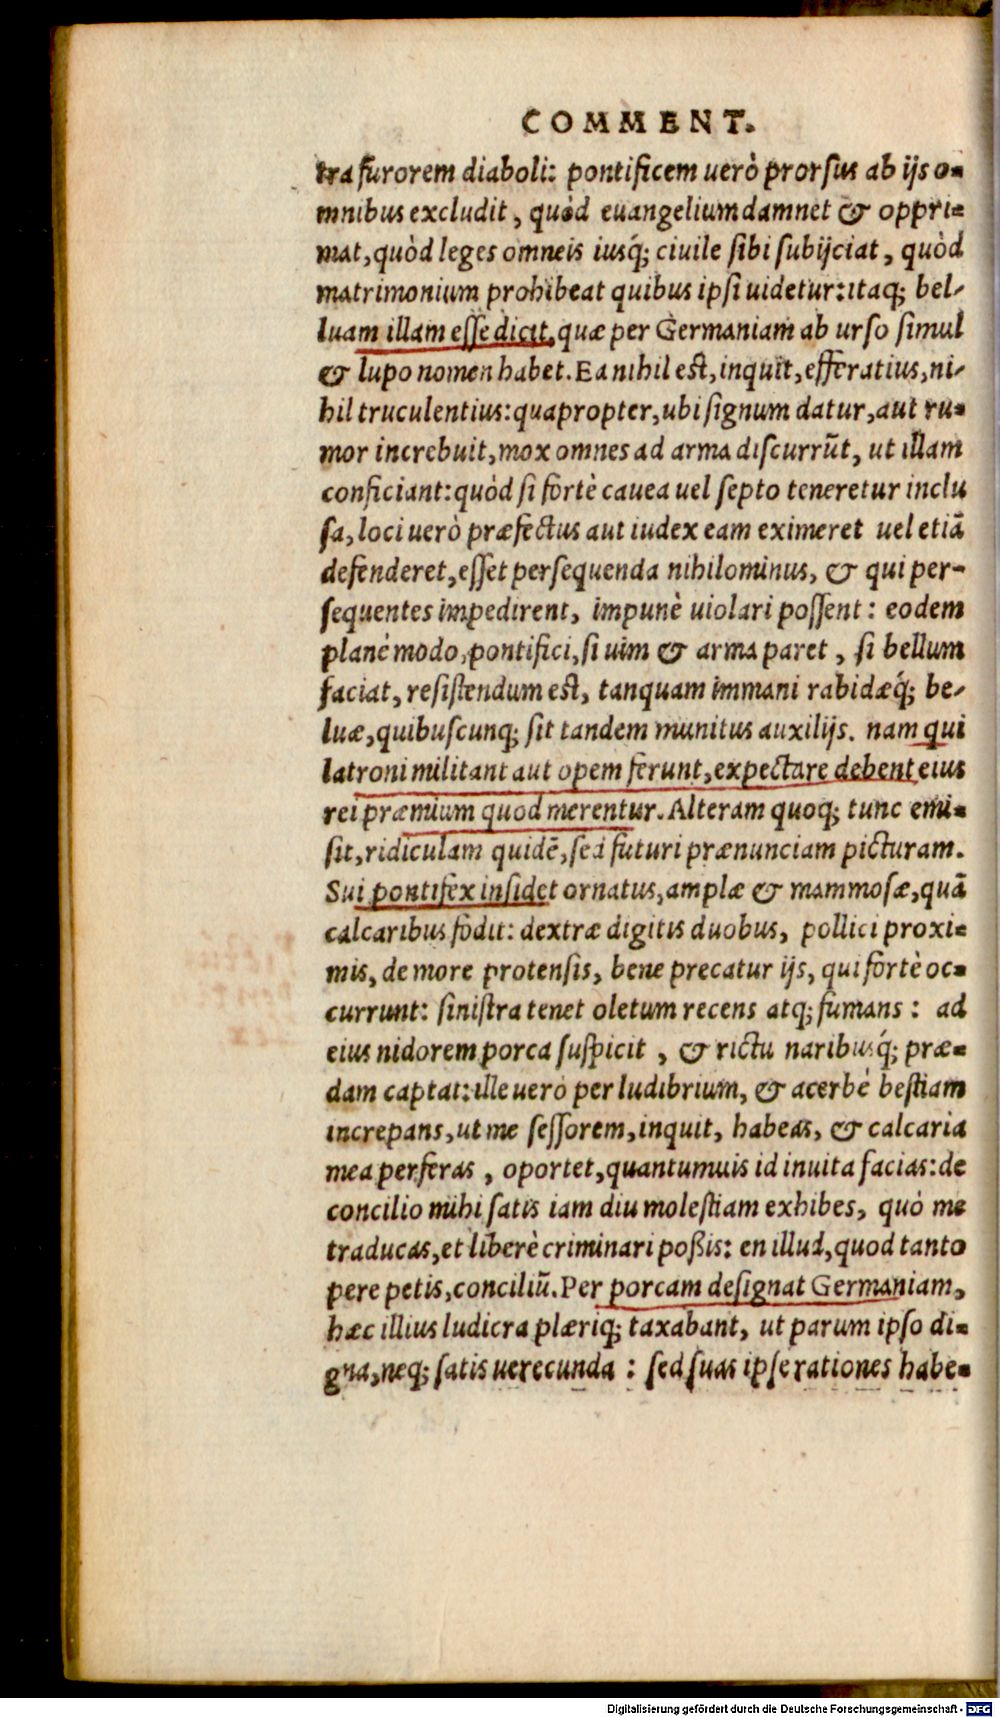 COMMENT.
tra furorem diaboli: pontificem uerò prorsus ab ijs o-
mnibus excludit, quòd euangelium damnet & oppri-
mat, quòd leges omneis iusq́; ciuile sibi subijciat, quòd
matrimonium prohibeat quibus ipsi uidetur: itaq; bel-
luam illam esse dicit, quæ per Germaniam ab urso simul
& lupo nomen habet. Ea nihil est, inquit, efferatius, ni-
hil truculentius: quapropter, ubi signum datur, aut ru-
mor increbuit, mox omnes ad arma discurrūt, ut illam
conficiant: quòd si fortè cauea uel septo teneretur inclu
sa, loci uerò præfectus aut iudex eam eximeret uel etiā
defenderet, esset persequenda nihilominus, & qui per-
sequentes impedirent, impunè uiolari possent: eodem
planè modo, pontifici, si uim & arma paret, si bellum
faciat, resistendum est, tanquam immani rabidæq́; be-
luæ, quibuscunq; sit tandem munitus auxilijs. nam qui
latroni militant aut opem ferunt, expectare debent eius
rei præmium quod merentur. Alteram quoq; tunc emi-
sit, ridiculam quidē, sed futuri prænunciam picturam.
Sui pontifex insidet ornatus, amplæ & mammosæ, quā
calcaribus fodit: dextræ digitis duobus, pollici proxi-
mis, de more protensis, bene precatur ijs, qui fortè oc-
currunt: sinistra tenet oletum recens atq; fumans: ad
eius nidorem porca suspicit, & rictu naribusq́; præ-
dam captat: ille uerò per ludibrium, & acerbè bestiam
increpans, ut me sessorem, inquit, habeas, & calcaria
mea perferas, oportet, quantumuis id inuita facias: de
concilio mihi satis iam diu molestiam exhibes, quò me
traducas, et liberè criminari poßis: en illud, quod tanto
pere petis, conciliū. Per porcam designat Germaniam,
hæc illius ludicra plæriq; taxabant, ut parum ipso di-
gna, neq; satis uerecunda: sed suas ipse rationes habe-
Digitalisierung gefördert durch die Deutsche Forschungsgemeinschaft - DFG